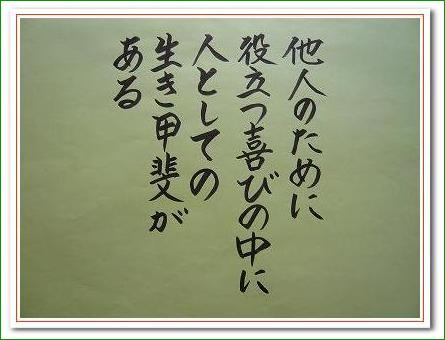 他人のために
役立つ喜びの中に
人としての
生き甲斐が
ある